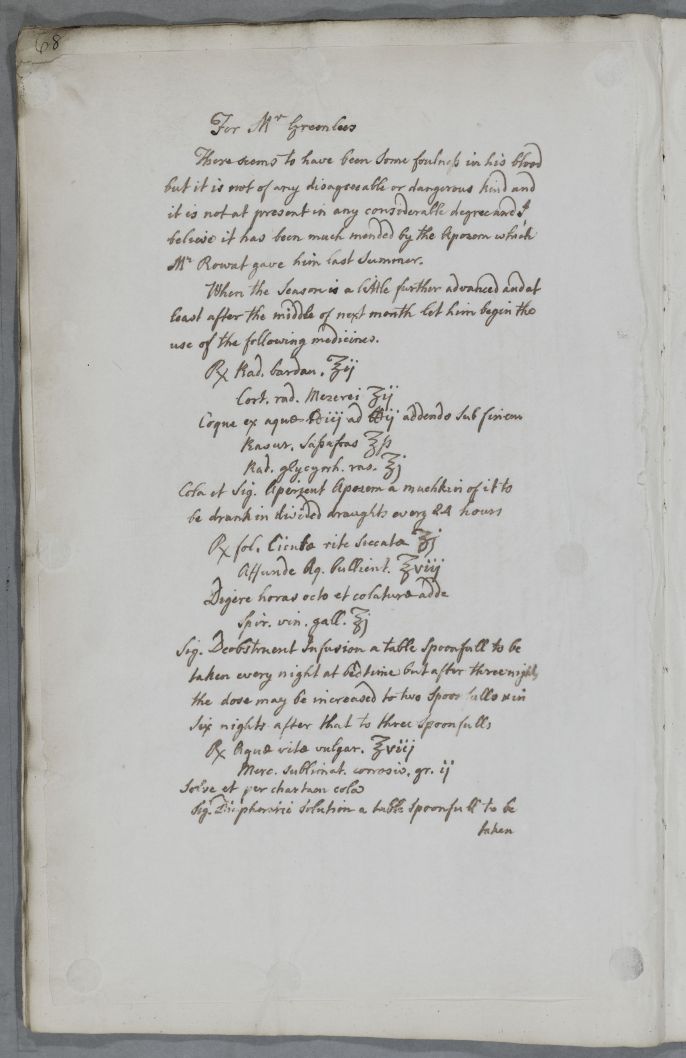 68
For Mr Greenlees
There seems to have been some foulness in his blood
but it is not of any disagreeable or dangerous kind and
it is not at present in any considerable degree and I
believe it has been much mended by the Apozem which
Mr Rowat gave him last summer.
When the season is a little further advanced and at
least after the middle of next month let him begin the
use of the following medicines.
℞ Rad. bardan. ℥ij
Cort. rad. Mezerei ʒij
Coque ex aquæ ℔iij ad ℔ij addendo sub finem
Rasur. Sassafras ℥ß
Rad. glycyrrh. ras. ʒj
Cola et Sig. Aperient Apozem a muchkin of it to
be drank in divided draughts every 24 hours
℞ fol. Cicutæ rite siccatæ ʒj
Affunde Aq. bullient. ℥viij
Digere horas octo et colaturæ adde
Spir. vin. gall. ℥j
Sig. Deobstruent Infusion a table spoonfull to be
taken every night at bedtime but after three nights
the dose may be increased to two spoonfulls & in
six nights after that to three spoonfulls
℞ Aquæ vitæ vulgar. ℥viij
Merc. sublimat. corrosiv. gr. ij
Solve et per chartam cola
Sig. Diaphoretic solution a table spoonfull to be
taken